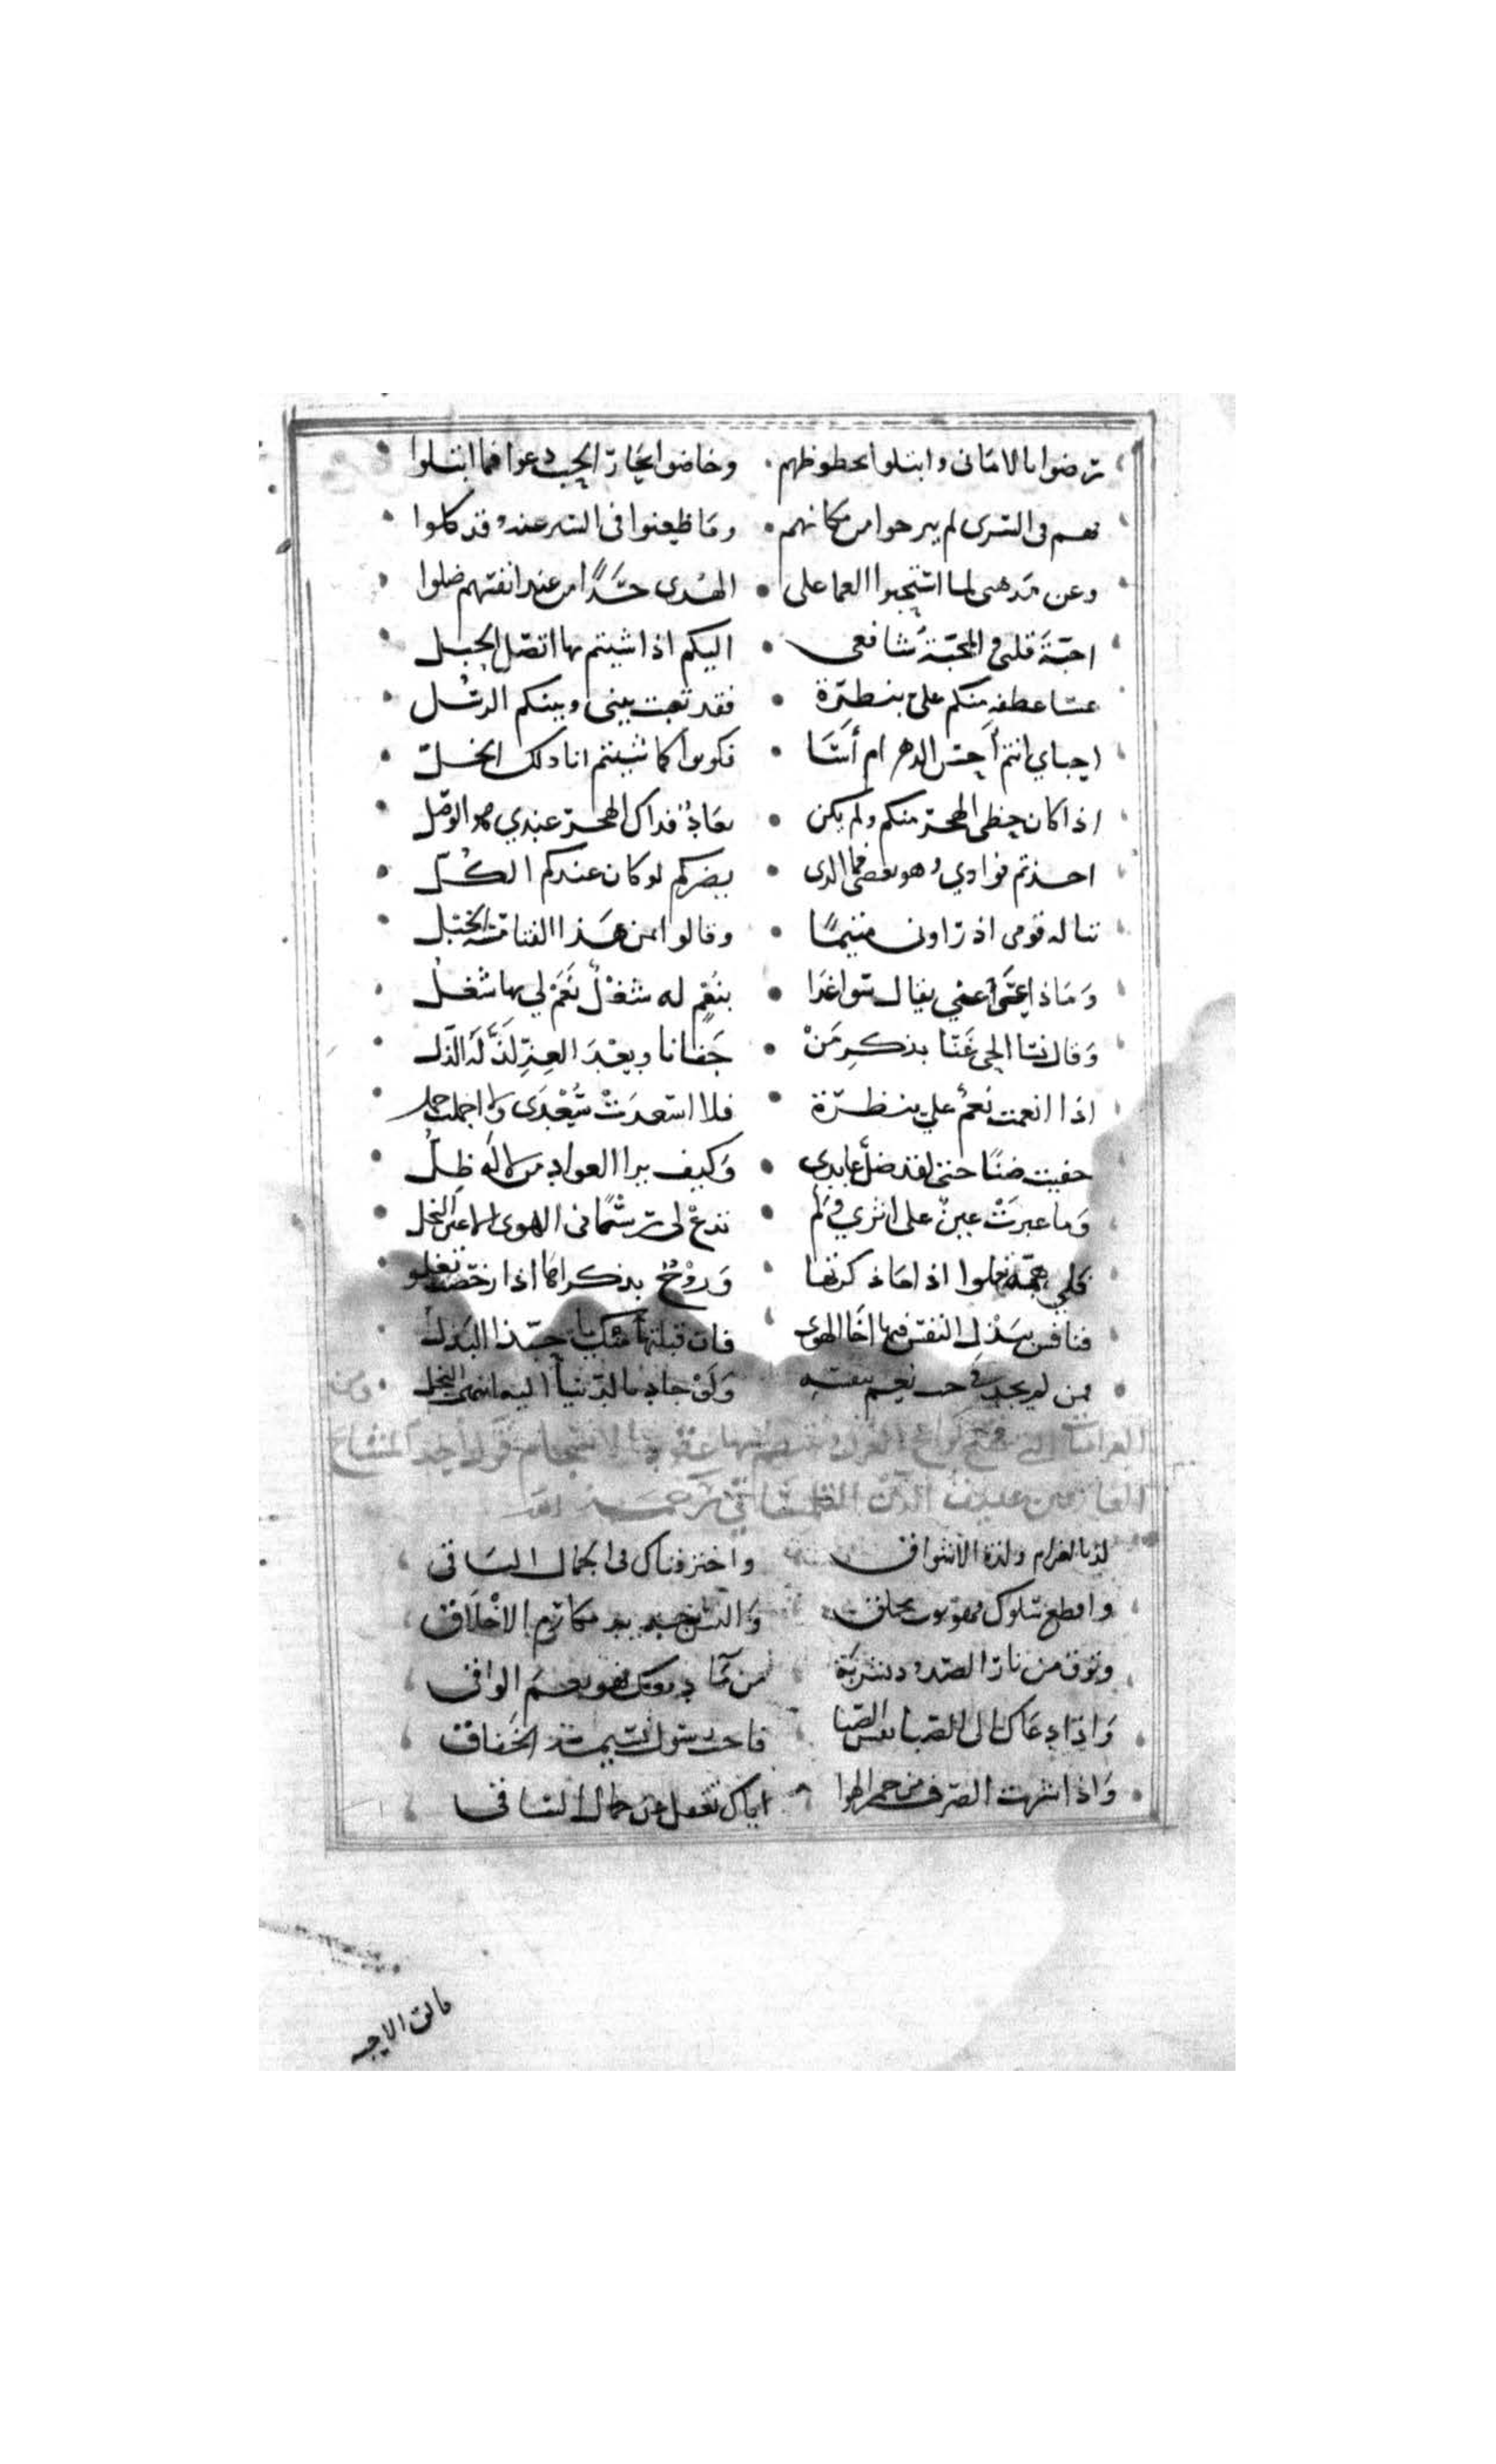 رضوا بالامانى وابتلوا بحظوظهم وخاضوا بحار الحب دعوا فما ابتلوا
فهم فى السرى لم يبرحوا من مكانهم وما ظعنوا فى السير عنه وقد كلوا
وعن مذهبى لما استحبوا العما على الهدى حسدًا من عند انفسهم ضلوا
احبة قلبى والمحبة شافعى اليكم اذا شيتم بها اتصل الحبل
عسا عطفة منكم على بنظرة فقد تعبت بينى وبينكم الرسل
احباى انتم أحسن الدهر ام أسا فكونوا كما شيتم انا ذلك الخل
اذا كان حظى الهجر منكم ولم يكن بعاد فذاك الهجر عندي هو الوصل
اخذتم فوادي وهو بعضى فما الذى يضركم لو كان عندكم الكل
نساله قومى اذ راونى متيمًا وقالوا بمن هذا الفتا مسه الخبل
وماذا عسى عنى يقال سوا غدا بنعم له شغل نعم لي بها شغل
وقال نسا الحى عنا بذكر من جفانا وبعد العز لذ له الذل
اذا انعمت نعم علي بنظرة فلا اسعدت سعدى ولا اجملت جمل
خفيت ضنًا حتى لقد ضل عايدي وكيف يرا العواد من لا له ظل
وما عبرت عين على اثري ولم تدع لى رسمًا فى الهوى الاعين النجل
فلي همة تعلوا اذا ما ذكرتها وروح بذكراها اذا رخصت تغلو
فنافس ببذل النفس فيها اخا الهوى فان قبلتها منك يا حبذا البذل
فمن لم يجد فى حب نعم بنفسه ولو جاد بالدنيا اليه انتهى البخل ومن
الغراميات التى قول احد المشايخ
العارفين عفيف الدين التلمسانى رحمه الله
لذ بالغرام ولذة الاشواق واختر فناك فى الجمال الساقى
واقطع سلوكك والبس جديد مكارم الاخلاق
وتوق من نار الصدود بشربة من ما دموعك فهو نعم الواقى
واذا دعاك الى الصبا نفس الصبا فاجب رسول نسيمه الخفاق
واذا شربت الصرف من خمر الهوا اياك تغفل عن جمال الساقى
مالت الاجبه